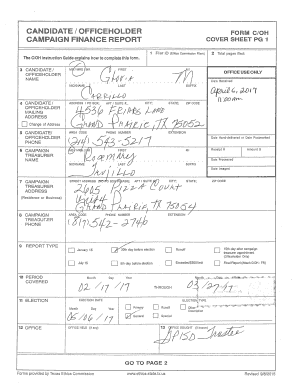 CANDIDATE / OFFICEHOLDER
CAMPAIGN FINANCE REPORT
FORM C/OH
COVER SHEET PG 1
The C/OH Instruction Guide explains how to complete this form.
1 Filer ID (Ethics Commission Filers)
2 Total pages filed:
3 CANDIDATE / OFFICEHOLDER NAME
MS / MRS / MR FIRST MI
Gloria M
NICKNAME LAST SUFFIX
Carrillo
OFFICE USE ONLY
Date Received
April 6, 2017
11:00am
4 CANDIDATE / OFFICEHOLDER MAILING ADDRESS
Change of Address
ADDRESS / PO BOX; APT / SUITE #; CITY; STATE; ZIP CODE
4536 Lane
Grand Prairie, TX 75052
5 CANDIDATE/ OFFICEHOLDER PHONE
AREA CODE PHONE NUMBER EXTENSION
(214) 543-5217
Date Hand-delivered or Date Postmarked
Receipt # Amount $
Date Processed
Date Imaged
6 CAMPAIGN TREASURER NAME
MS / MRS / MR FIRST MI
Rosemary
NICKNAME LAST SUFFIX
7 CAMPAIGN TREASURER ADDRESS
(Residence or Business)
STREET ADDRESS (NO PO BOX PLEASE); APT / SUITE #; CITY; STATE; ZIP CODE
2605 Court
Grand Prairie TX 75054
8 CAMPAIGN TREASURER PHONE
AREA CODE PHONE NUMBER EXTENSION
(817) 542-2746
9 REPORT TYPE
January 15
30th day before election
Runoff
15th day after campaign treasurer appointment (Officeholder Only)
July 15
8th day before election
Exceeded $500 limit
Final Report (Attach C/OH - FR)
10 PERIOD COVERED
Month Day Year
02/17/17
THROUGH
Month Day Year
03/27/17
11 ELECTION
ELECTION DATE
Month Day Year
05/06/17
ELECTION TYPE
Primary
Runoff
Other Description
General
Special
12 OFFICE
OFFICE HELD (if any)
13 OFFICE SOUGHT (if known)
GPISD Trustee
GO TO PAGE 2
Forms provided by Texas Ethics Commission
www.ethics.state.tx.us
Revised 9/8/2015